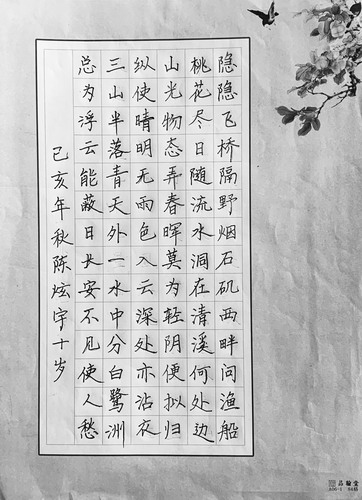 隐隐飞桥隔野烟石矶西畔问渔船
桃花尽日随流水洞在清溪何处边
山光物态弄春晖莫为轻阴便拟归
纵使晴明无雨色入云深处亦沾衣
三山半落青天外一水中分白鹭洲
总为浮云能蔽日长安不见使人愁
己亥年秋陈炫宇十岁
品翰堂